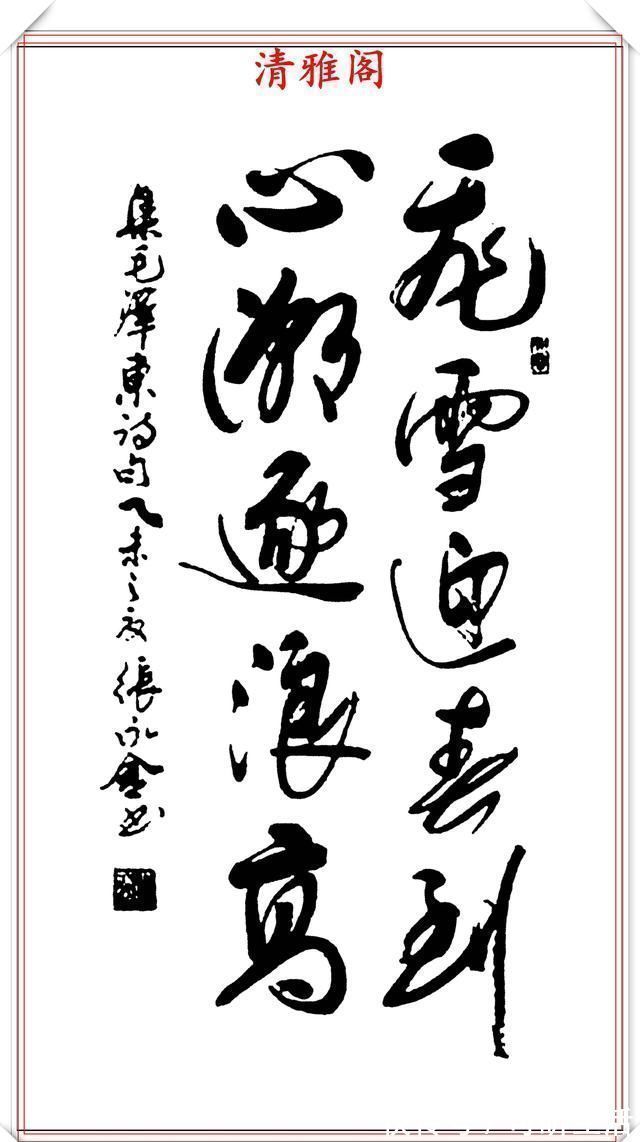 清雅阁
飛雪迎春到
心潮逐浪高
集毛澤東詩句乙未之夏張永金书